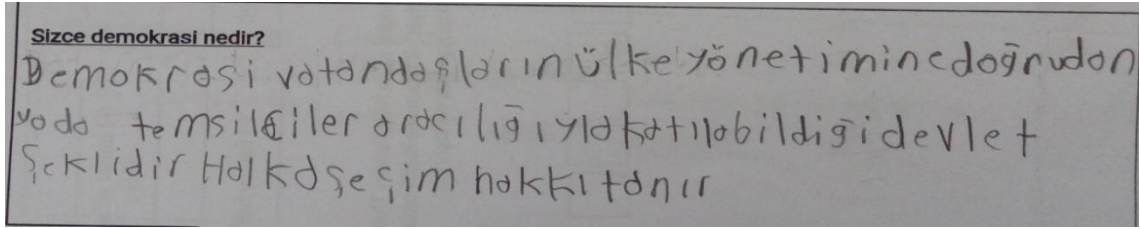 Sizce demokrasi nedir?
Demokrasi vatandaşların ülke yönetimine doğrudan
yada temsilciler aracılığıyla katılabildiği devlet
Şeklidir Halka seçim hakkı tanır